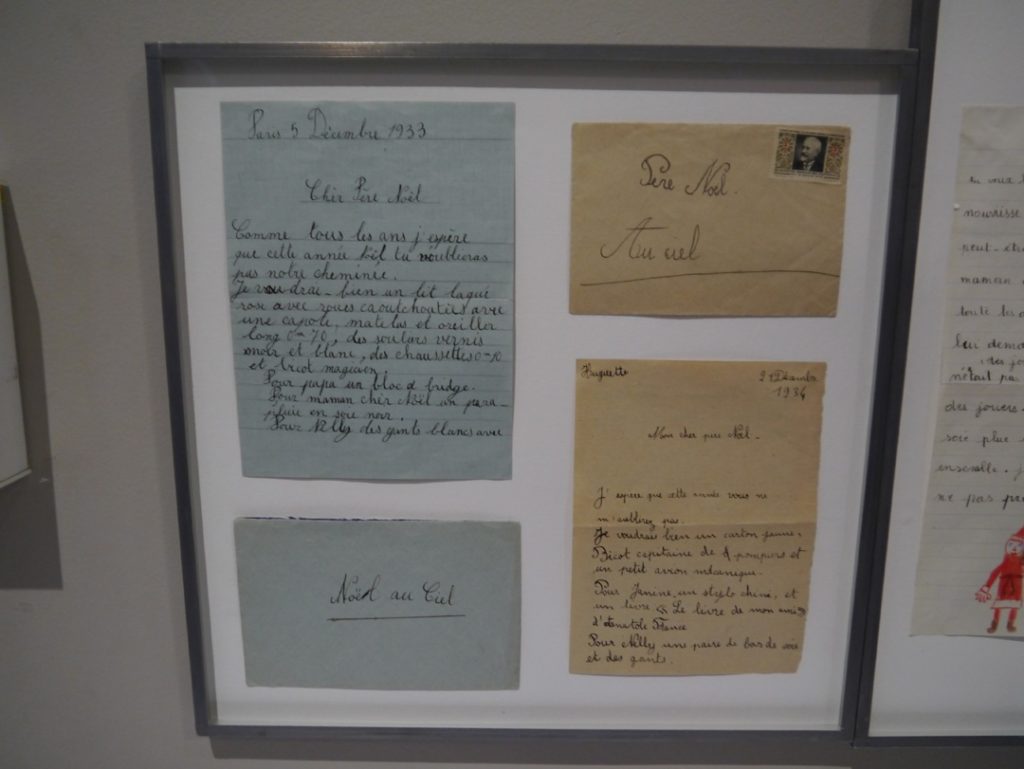 Paris 5 Décembre 1933
Cher Père Noël
Comme tous les ans j'espère
que cette année Noël tu n'oublieras
pas notre cheminée.
Je voudrai-bien un lit laqué
rose avec roues caoutchoutées avec
une capote, matelas et oreiller
long 0m70, des souliers vernis
noir et blanc, des chaussettes 0-10
et tricot magicien
Pour papa un bloc de bridge.
Pour maman cher Noël un para-
pluie en soie noir.
Pour Nelly des gants blancs avec
Noël au Ciel
Père Noël.
Au ciel
Huguette
21 Décembre
1934
Mon cher père Noël-
J'espère que cette année vous ne
m'oublirez pas.
Je voudrais bien un carton jaune,
Bicot capitaine de pompiers et
un petit avion mécanique.
Pour Janine, un stylo chiné, et
un livre "Le livre de mon ami"
d'Anatole France
Pour Nelly une paire de bas de soie
et des gants.
tu veux
nourrisse
peut-être
maman
toute les
lui dema
n'était pas
des jouers.
soié plus
ensemble.
ne pas